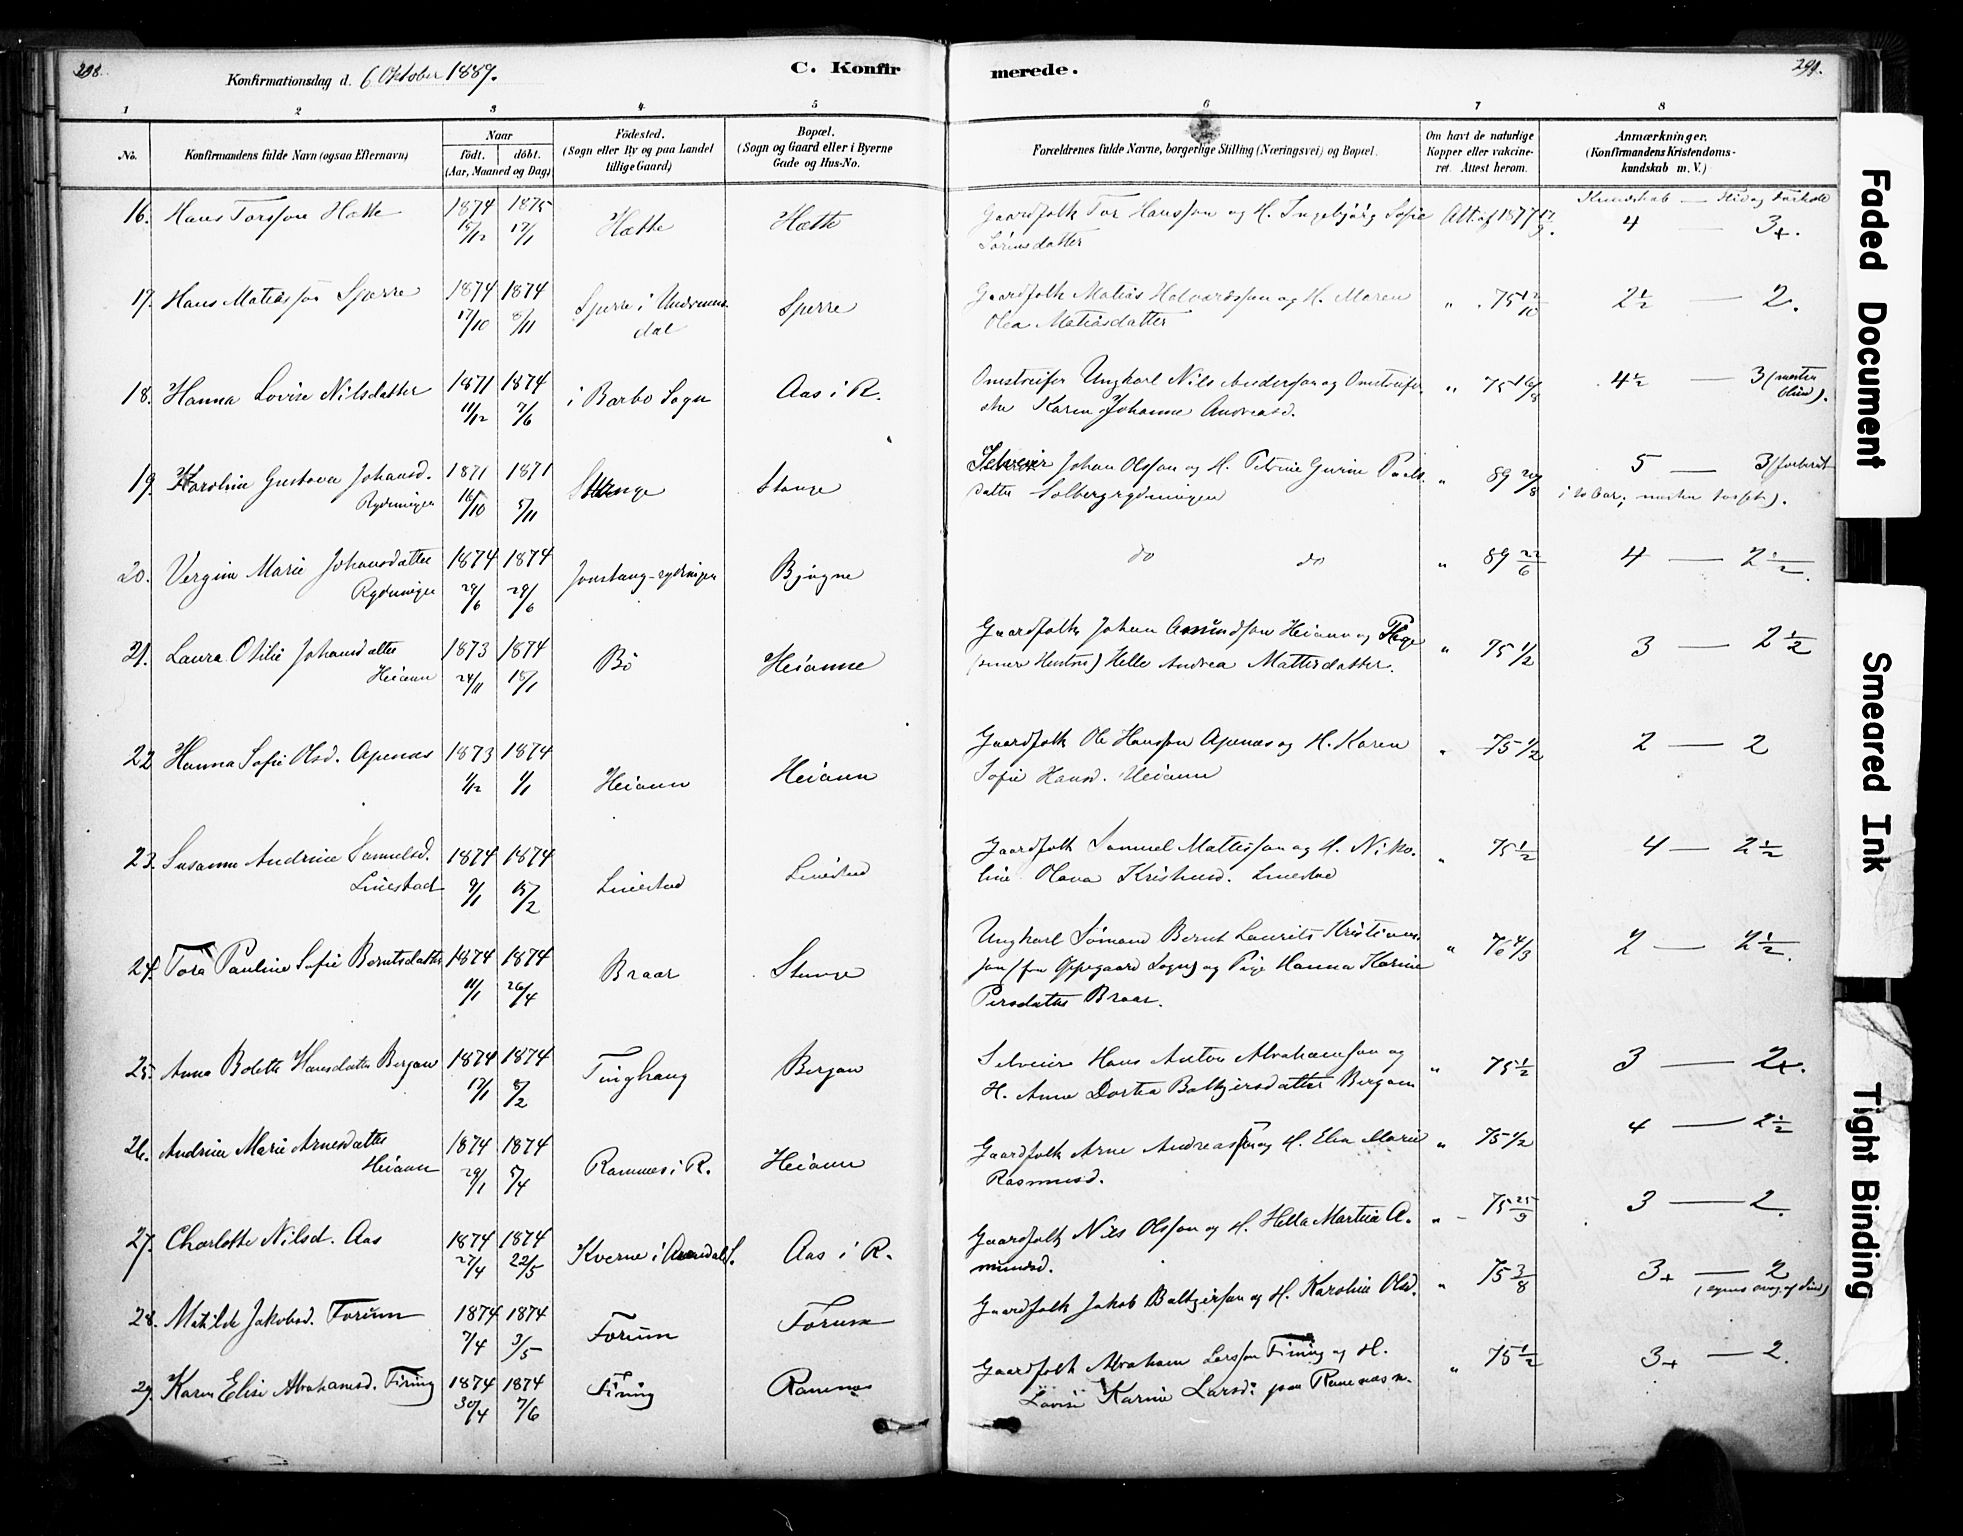 298.
Konfirmationsdag d. 6 Oktober 1889.
C. Konfirmerede.
299.
1 2 3 4 5 6 7 8
No.
Konfirmandens fulde Navn (ogsaa Efternavn)
Naar
født. døbt.
(Aar, Maaned og Dag)
Födested.
(Sogn eller By og paa Landet
tillige Gaard)
Bopæl.
(Sogn og Gaard eller i Byerne
Gade og Hus-No.
Forældrenes fulde Navne, borgerlige Stilling (Næringsvei) og Bopæl.
Om havt de naturlige
Kopper eller vakcine-
ret. Attest herom.
Anmærkninger.
(Konfirmandens Kristendoms-
kundskab m. V.)
Kundskab —
16. Hans Torsson Hætte 1874 15/12 1875 17/1 Hætte Hætte
Gaardfolk Tor Hansson og H. Ingebjörg Sofie
Sörensdatter
Att. af 1877 17/9. 4 — 3+.
17. Hans Matiasson Sperre 1874 17/10 1874 8/11 Sperre i
dal
Sperre
Gaardfolk Matias Halvardsson og H. Maren
Olea Matiasdatter
" 75 12/10 2½ — 2.
18. Hanna Lovise Nilsdatter 1871 11/12 1874 7/6 i Barbo Sogn Aas i R.
Omstreifer Ungkarl Nils Anderson og Omstreifer-
ske Karen Johanne Andreasd.
" 75 16/8 4½ — 3 (næsten
blind).
19. Karoline Gustava Johansd. 1871 16/10 1871 5/11 Stange Stange
Rydningen
Selveier Johan Olsson og H. Petrine Gurine Paals-
datter Solbergrydningen
" 89 20/8 5 — 3 (forberedt
20. Vergine Marie Johansdatter 1874 29/6 1874 Bjögne
Rydningen
do do
" 89 22/6 4 — 2½.
21. Laura Otilie Johansdatter 1873 24/11 1874 18/1 Bö Heianne
Heiann
Gaardfolk Johan Amundson Heiann og Pige
(senere Hustru) Helle Andrea Mattisdatter.
" 75 1/2 3 — 2½
22 Hanna Sofie Olsd. Apenæs 1873 1/12 1874 1/1 Heiann Heiann
Gaardfolk Ole Hansson Apenæs og H. Karen
Sofie Hansd. Heiann
" 75 1/2 2 — 2
23. Susanne Andrine Samuelsd. 1874 9/1 1874 15/2 Linestad Linestad
Linestad
Gaardfolk Samuel Mattisson og H. Niko-
line Olava Kristensd. Linestad
" 75 1/2 4 — 2½
24. Tora Pauline Sofie Berntsdatter 1874 11/1 1874 26/4 Braar Stange
Ungkarl Sømand Bernt Laurits Kristians-
son (fra Oppegaard Sogn) og Pige Hanna Karine
Persdatter Braar.
" 76 4/3 2 — 2½.
25. Anna Bolette Hansdatter Bergan 1874 17/1 1874 8/2 Tinghaug Bergan
Selveier Hans Anton Abrahamson og
H. Anne Dortea Baltzersdatter Bergan
" 75 1/2 3 — 2+.
26. Andrine Marie Arnesdatter 1874 29/1 1874 5/4 Ramnes i R. Heiann
Heiann
Gaardfolk Arne Andreasson og H. Elen Marie
Rasmusd.
" 75 1/2 4 — 2½
27. Charlotte Nilsd. Aas 1874 27/4 1874 22/5 Kverne i Arendal S. Aas i R.
Gaardfolk Nils Olsson og H. Hella Martea A-
mundsd.
" 75 25/9 3 — 2.
28. Matilde Jakobsd. Torum 1874 7/4 1874 3/5 Torum Torum
Gaardfolk Jakob Baltzerson og H. Karoline Olsd.
" 75 3/8 3+ — 2
29. Karen Elise Abrahamsd. Tining 1874 30/4 1874 7/6 Tining Ramnes
Gaardfolk Abraham Larsson Tining og H.
Lovise Karine Larsd. paa Ramnes
" 75 1/2 3+ — 2.
Faded Document
Smeared Ink
Tight Binding